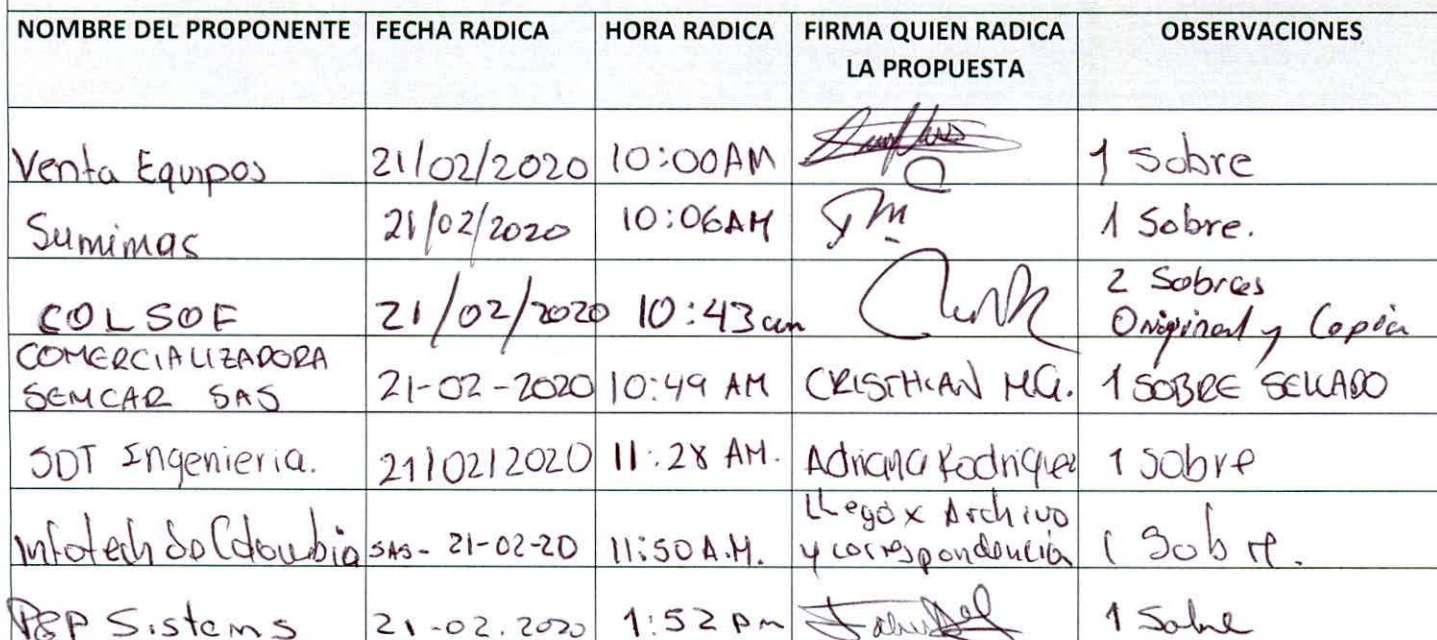 NOMBRE DEL PROPONENTE FECHA RADICA HORA RADICA FIRMA QUIEN RADICA OBSERVACIONES
LA PROPUESTA
Venta Equipos 21/02/2020 10:00AM 1 Sobre
Sumimas 21/02/2020 10:06AM 1 Sobre.
2 Sobres
COLSOF 21/02/2020 10:43 am Original y Copia
COMERCIALIZADORA
SEMCAR SAS 21-02-2020 10:49 AM CRISTHIAN M.G. 1 SOBRE SELLADO
SDT Ingenieria. 21/02/2020 11:28 AM. Adriana Rodriguez 1 sobre
LLegó x Archivo
Infotech de Colombia SAS- 21-02-20 11:50 A.M. y correspondencia 1 Sobre.
P&P Sistems 21-02.2020 1:52 pm 1 Sobre